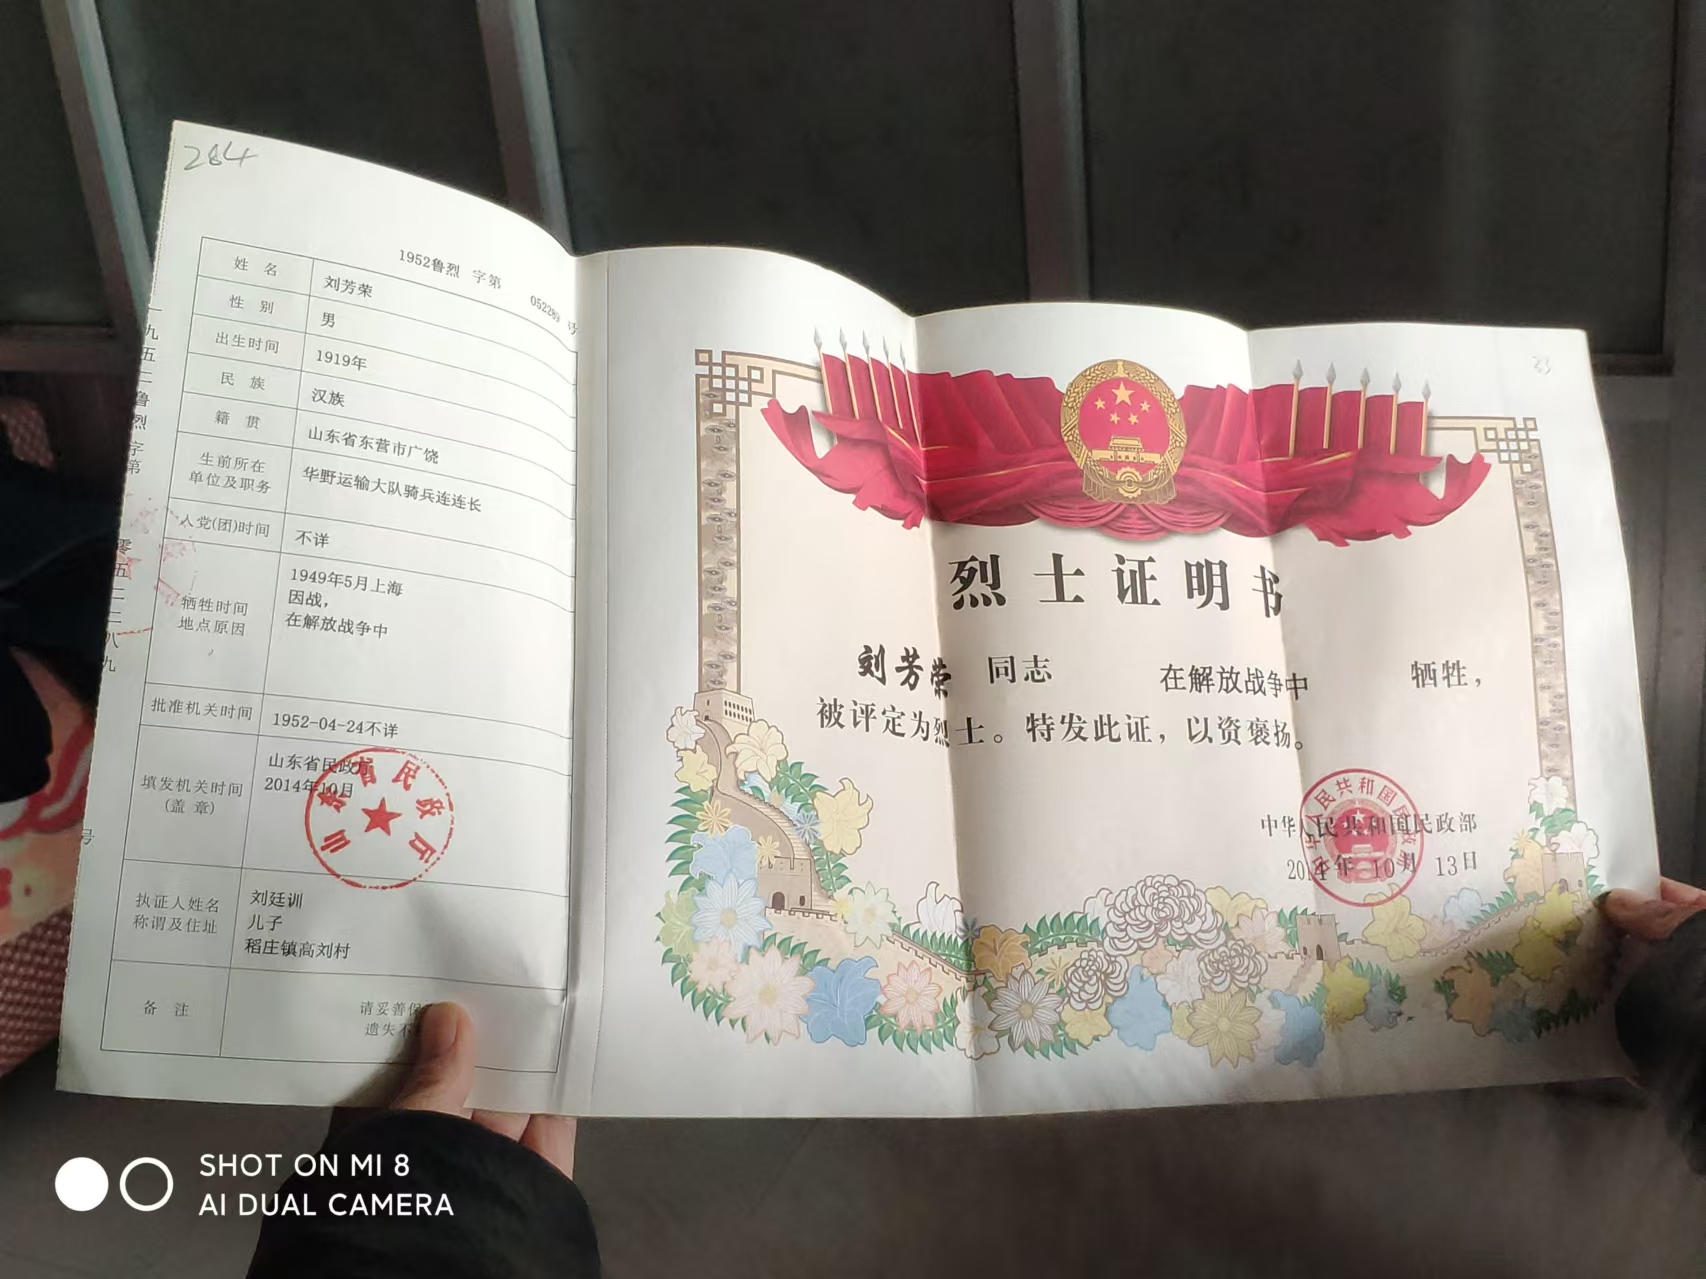 284
1952鲁烈 字第 052289 号
姓 名 刘芳荣
性 别 男
出生时间 1919年
民 族 汉族
籍 贯 山东省东营市广饶
生前所在
单位及职务 华野运输大队骑兵连连长
入党(团)时间 不详
牺牲时间
地点原因
1949年5月上海
因战,
在解放战争中
批准机关时间 1952-04-24不详
填发机关时间
(盖 章)
山东省民政厅
2014年10月
山东省民政厅
执证人姓名
称谓及住址
刘廷训
儿子
稻庄镇高刘村
备 注
请妥善保
遗失不
一九五二鲁烈字第 零五二二八九 号
33
烈士证明书
刘芳荣 同志 在解放战争中 牺牲，
被评定为烈士。特发此证，以资褒扬。
中华人民共和国民政部
2014年 10月 13日
中华人民共和国民政部
SHOT ON MI 8
AI DUAL CAMERA